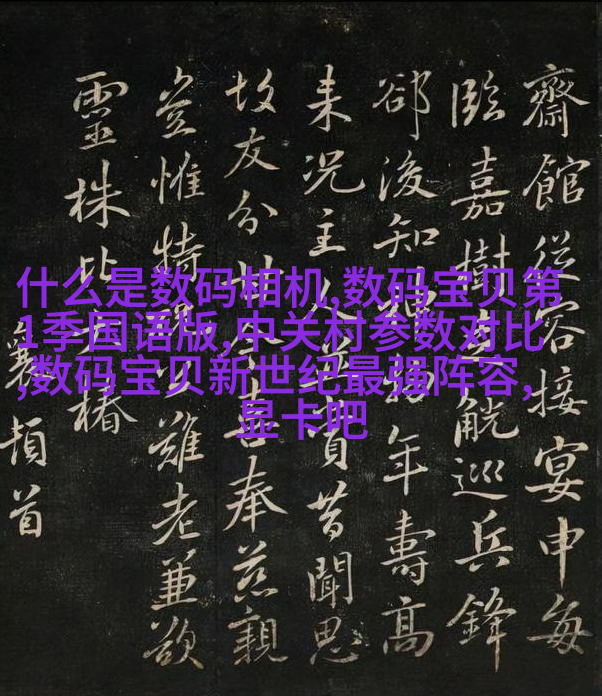 什么是数码相机,数码宝贝第
1季国语版,中关村参数对比
,数码宝贝新世纪最强阵容,
显卡吧
齋館從容接宴申每
臨嘉樹觥巡兵鋒
郤後知年壽高
来况主昔聞思
故友分喜奉慈親
豈惟特難老兼欲
靈株比椿
襄頓首